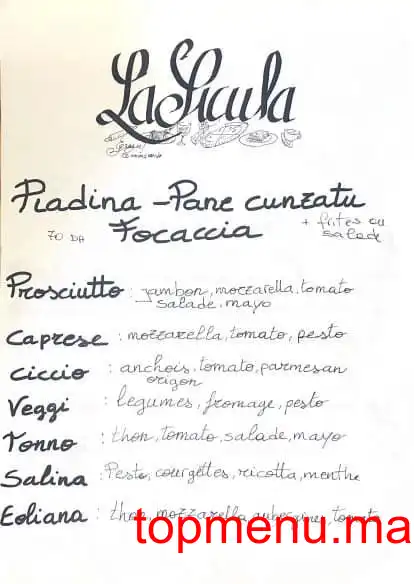 La Sicula
Piadina - Pane cunzatu
70 DA Focaccia + frites ou
salade
Prosciutto : jambon, mozzarella, tomato
salade, mayo
Caprese : mozzarella, tomato, pesto
Ciccio : anchois, tomato, parmesan
origon
Veggi : legumes, fromage, pesto
Tonno : thon, tomato, salade, mayo
Salina : Pesto, courgettes, ricotta, menthe
Eoliana : thon, mozzarella, aubergines, tomato
topmenu.ma